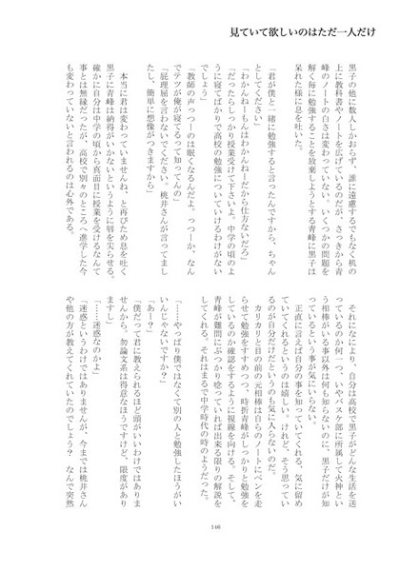 見ていて欲しいのはただ一人だけ
黒子の他に数人しかおらず、誰に遠慮するでもなく机の
上に教科書やノートを広げているのだが、さっきから青
峰のノートの白さは変わっていない。いくつかの問題を
解く毎に勉強することを放棄しようとする青峰に黒子は
呆れた様に息を吐いた。
「君が僕と一緒に勉強すると言ったんですから、ちゃん
としてください」
「わかんねーもんはわかんねーだから仕方ないだろ」
「だったらしっかり授業受けて下さいよ。中学の頃のよ
うに寝てばかりで高校の勉強についていけるわけがない
でしょう」
「教師の声っつーのは眠くなるんだよ。っつーか、なん
でテツが俺が寝てるって知ってんの」
「屁理屈を言わないでください。桃井さんが言ってまし
たし、簡単に想像がつきますから」
本当に君は変わっていませんね、と再びため息を吐く
黒子に青峰は納得がいかないというように唇を尖らせる。
確かに自分は中学の頃から真面目に授業を受けるなんて
事とは無縁だったが、高校で別々のところへ進学した今
も変わっていないと言われるのは心外である。
それになにより、自分は高校で黒子がどんな生活を送
っているのか何一つ、いやバスケ部に所属して火神とい
う相棒がいる事以外は何も知らないのに、黒子だけが知
っているという事が気にいらない。
正直に言えば自分の事を知っていてくれる、気に留め
ていてくれるというのは嬉しい。けれど、そう思ってい
るのが自分だけだというのも気に入らないのだ。
カリカリと目の前の元相棒は自らのノートにペンを走
らせて勉強をすすめつつ、時折青峰がしっかりと勉強を
しているのか確認をするように視線を向ける。そして、
青峰が難問にぶつかり唸っていれば出来る限りの解説を
してくれる。それはまるで中学時代の時のようだった。
「……やっぱり僕ではなくて別の人と勉強したほうがい
いんじゃないですか？」
「あー？」
「僕だって君に教えられるほど頭がいいわけではありま
せんから。勿論文系は得意なほうですけど、限度があり
ますし」
「……迷惑なのかよ」
「迷惑というわけではありませんが、今までは桃井さん
や他の方が教えてくれていたのでしょう？　なんで突然
146